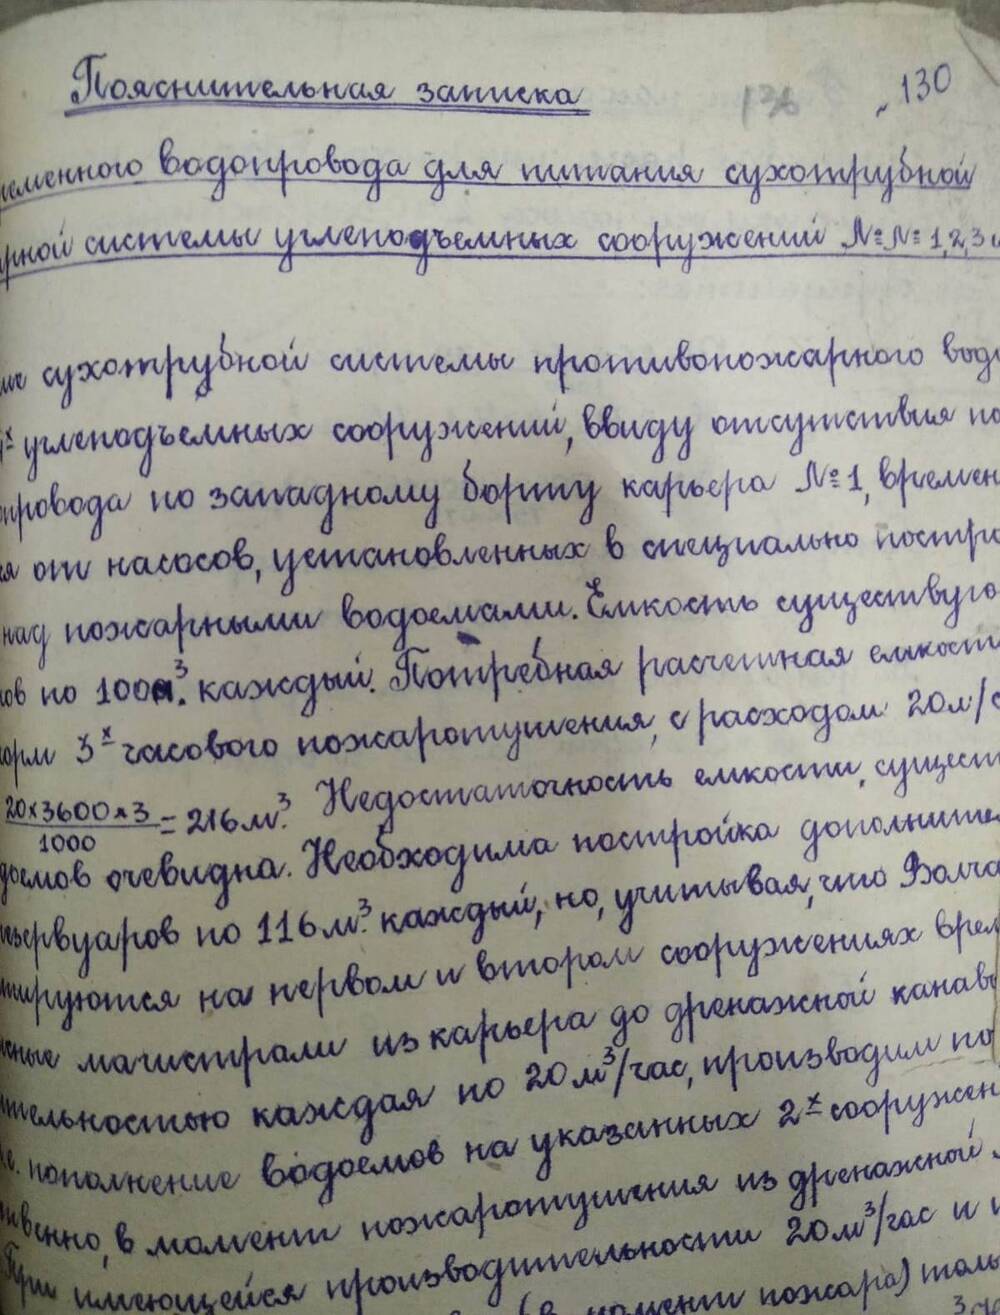 Пояснительная записка
136 130
еменного водопровода для питания сухотрубной
рной системы углеподъемных сооружений №№ 1,2,3 и
сухотрубной системы противопожарного вод
х углеподъемных сооружений, ввиду отсутствия по
провода по западному борту карьера №1, времен
ся от насосов, установленных в специально постро
над пожарными водоемами. Ёмкость существую
ов по 100м³. каждый. Потребная расчетная емкост
орм 3х часового пожаротушения, с расходом 20л/с
20×3600×3/1000 = 216м³. Недостаточность емкости, сущест
доемов очевидна. Необходима постройка дополните
езервуаров по 116м³. каждый, но, учитывая, что Волча
тируются на первом и втором сооружениях врем
сные магистрали из карьера до дренажной канав
ительностью каждая по 20м³/час, производим по
.е. пополнение водоемов на указанных 2х сооружен
твенно, в момент пожаротушения из дренажной
При имеющейся производительности 20м³/час и
моменти пожара) толь